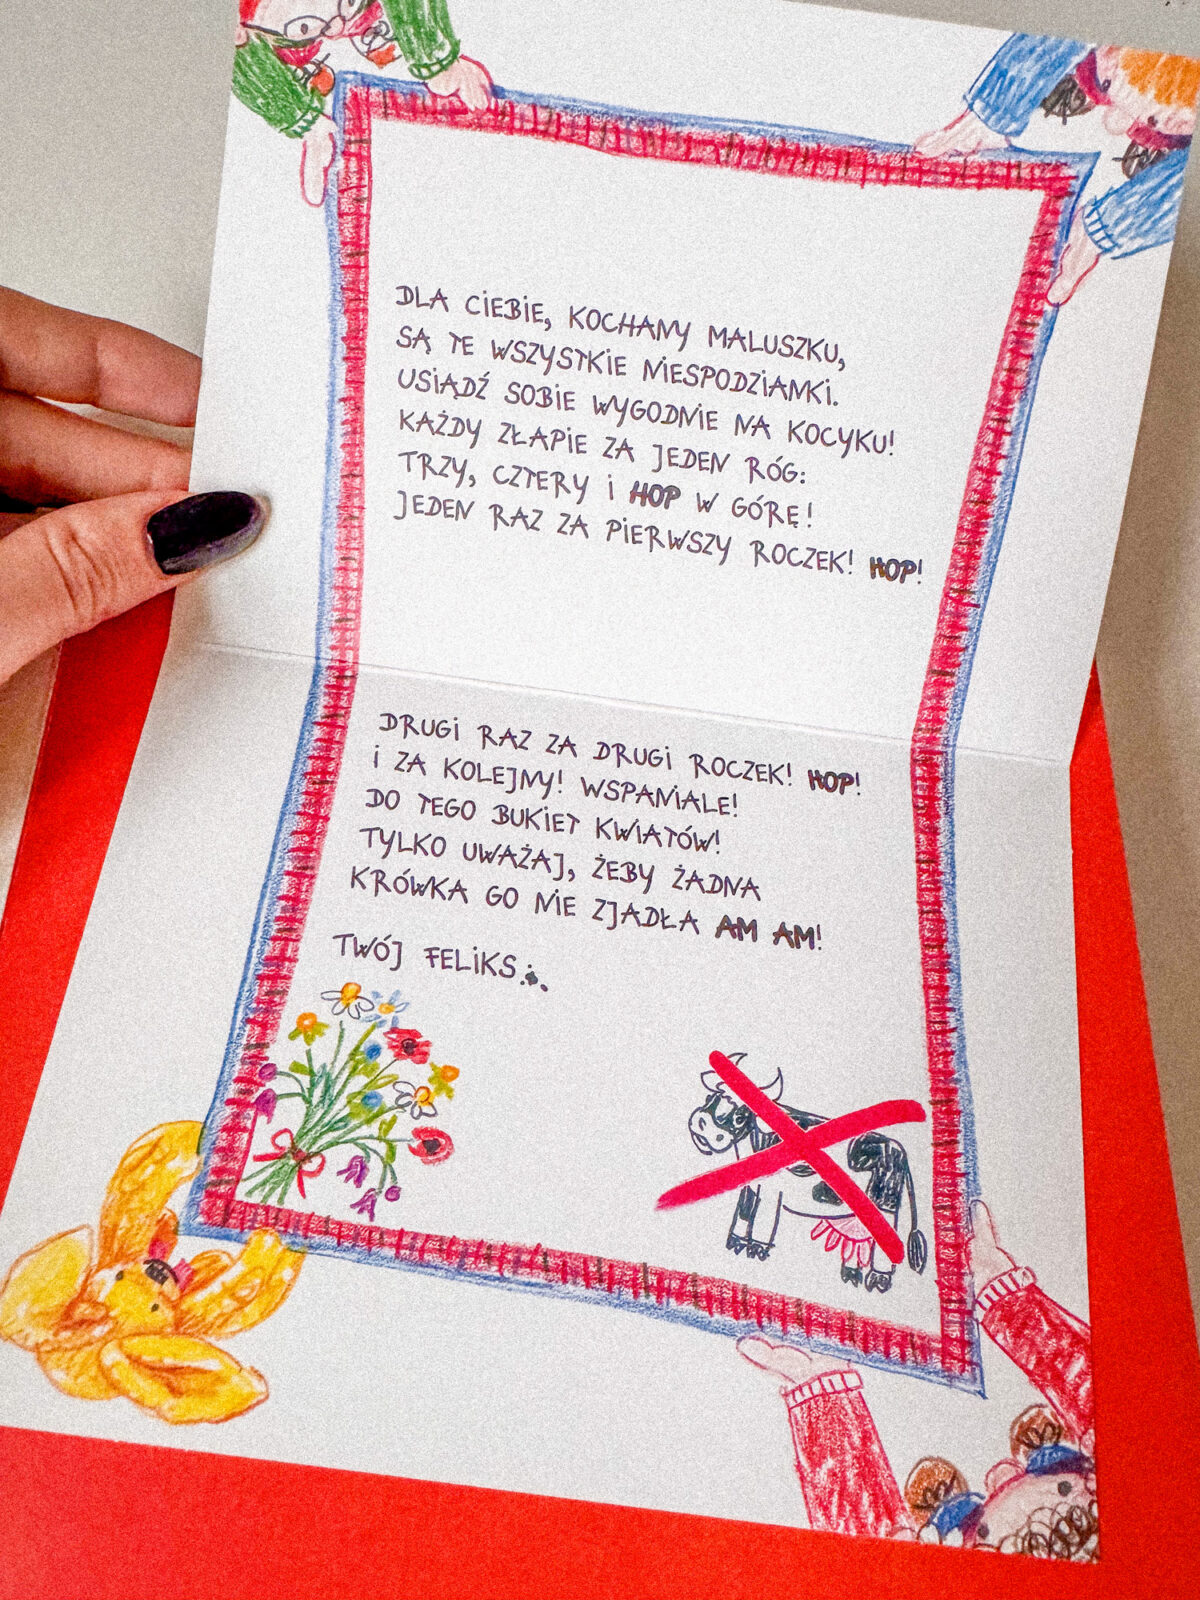 DLA CIEBIE, KOCHANY MALUSZKU,
SĄ TE WSZYSTKIE NIESPODZIANKI.
USIĄDŹ SOBIE WYGODNIE NA KOCYKU!
KAŻDY ZŁAPIE ZA JEDEN RÓG:
TRZY, CZTERY I HOP W GÓRĘ!
JEDEN RAZ ZA PIERWSZY ROCZEK! HOP!
DRUGI RAZ ZA DRUGI ROCZEK! HOP!
I ZA KOLEJNY! WSPANIALE!
DO TEGO BUKIET KWIATÓW!
TYLKO UWAŻAJ, ŻEBY ŻADNA
KRÓWKA GO NIE ZJADŁA AM AM!
TWÓJ FELIKS